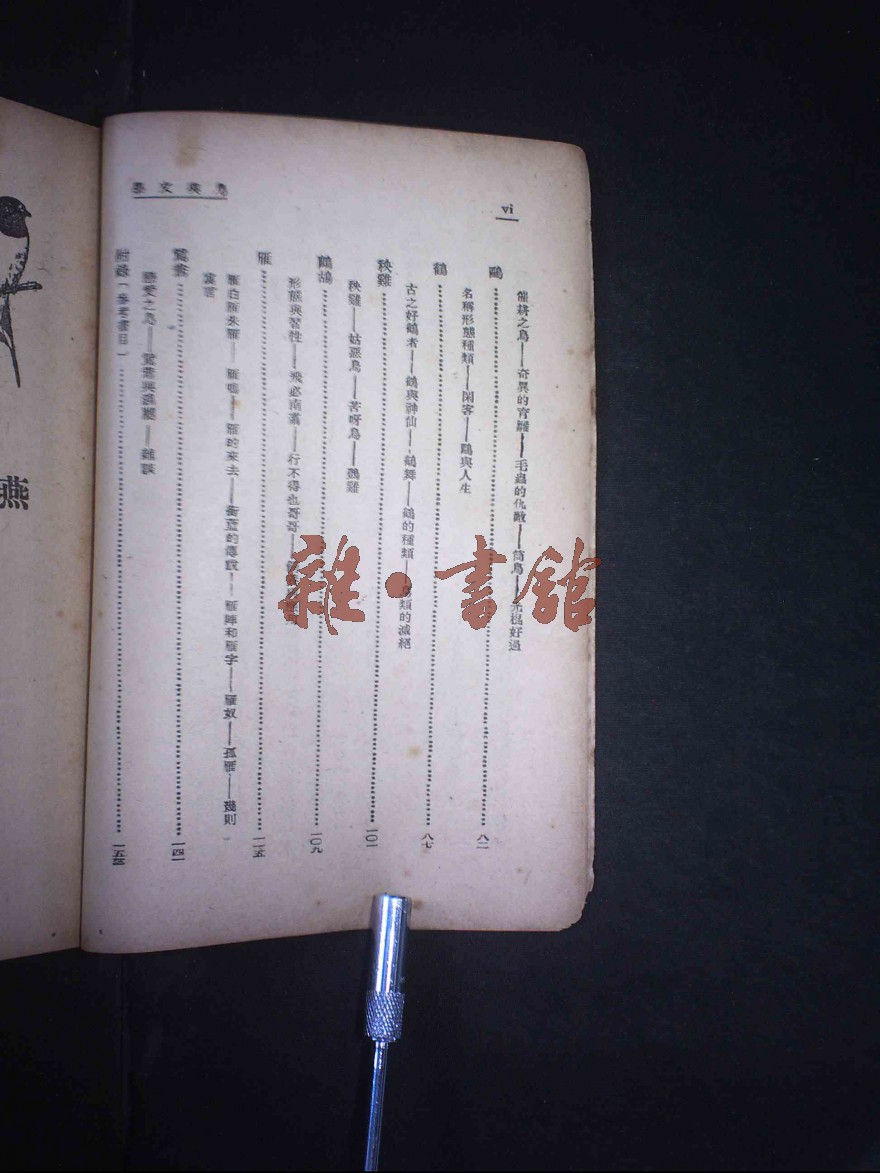 鳥與文藝
vi
催耕之鳥——奇異的育雛——毛蟲的仇敵——筒鳥——光棍好過
鷗 八二
名稱形態種類——閑客——鷗與人生
鶴 八七
古之好鶴者——鶴與神仙——鶴舞——鶴的種類——類的滅絕
秧雞 一〇一
秧雞——姑惡鳥——苦呀鳥——鷄
鷓鴣 一〇九
形態與習性——飛必南翥——行不得也哥哥——
雁 一一五
雁白雁朱雁——雁鳴——雁的來去——的傳說——雁陣和雁字——雁奴——孤雁——幾則
寓言
鴛鴦 一四一
戀愛之鳥——鴛鴦與鸂鶒——雜談
附錄(參考書目) 一五
燕
雜·書館